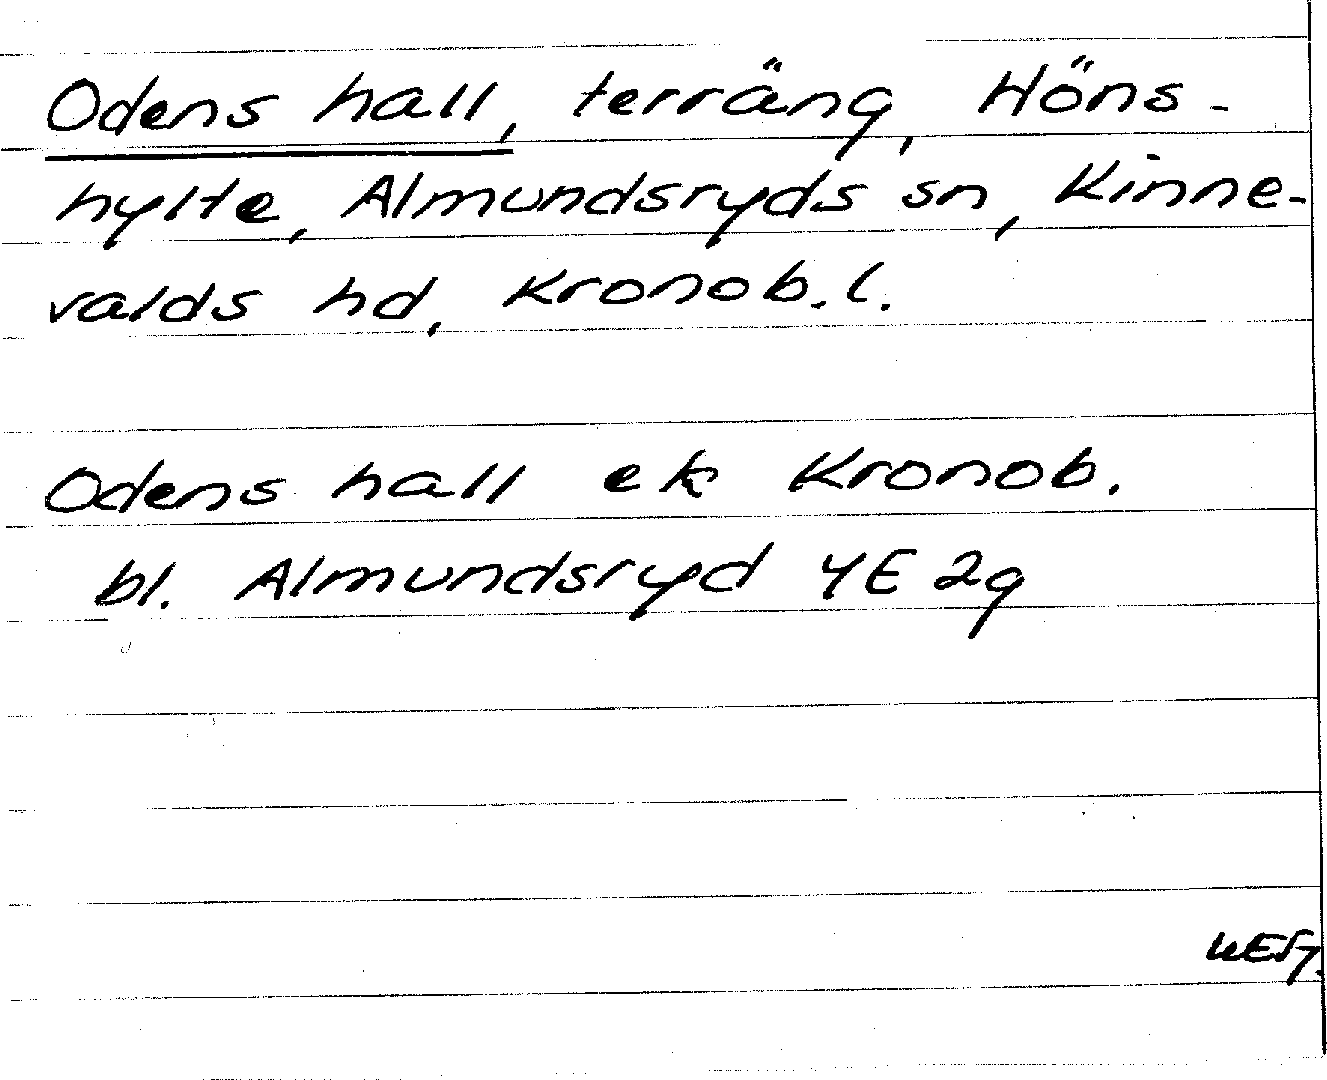 Odens hall, terräng, Höns-
hylte, Almundsryds sn, Kinne-
valds hd, Kronob. l.
Odens hall ek Kronob.
bl. Almundsryd 4E 2g